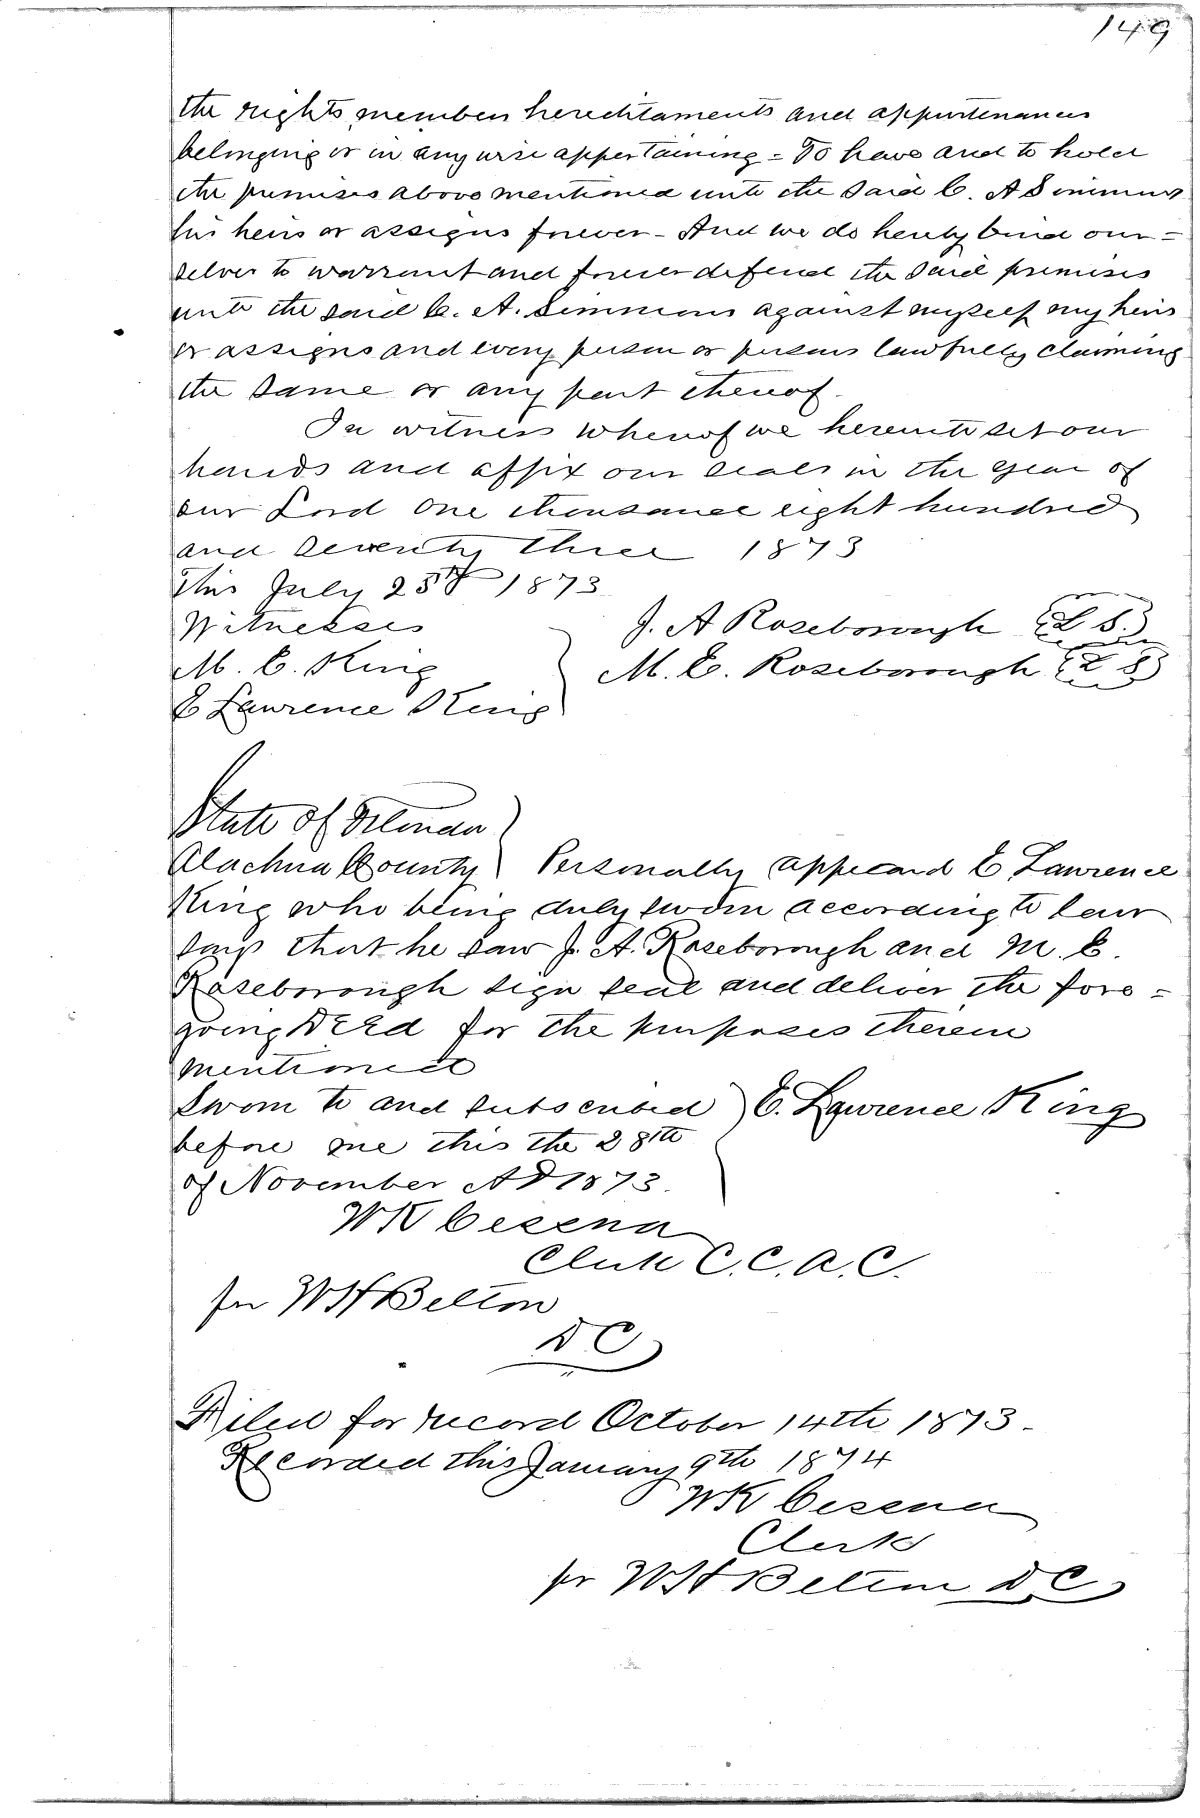 149
the rights members hereditaments and appurtenances
belonging or in any wise appertaining = To have and to hold
the premises above mentioned unto the said C. A Simmons
his heirs or assigns forever - And we do hereby bind our =
selves to warrant and forever defend the said premises
unto the said C. A. Simmons against myself my heirs
or assigns and every person or persons lawfully claiming
the same or any part thereof.
In witness whereof we hereunto set our
hands and affix our seals in the year of
our Lord one thousand eight hundred
and seventy three 1873
This July 25th 1873
Witnesses J. A Roseborough (L S.)
M. C. King M. E. Roseborough (L S)
E Lawrence King
State of Florida
Alachua County Personally appeard E Lawrence
King who being duly sworn according to law
says that he saw J. A. Roseborough and M. E.
Roseborough sign seal and deliver the fore =
going Deed for the purposes therein
mentioned
Sworn to and subscribed E. Lawrence King
before me this the 28th
of November AD 1873.
W K Cessna
Clerk C. C. A. C.
per W H Belton
D C
Filed for record October 14th 1873 -
Recorded this January 9th 1874
W K Cessna
Clerk
pr W H Belton D C